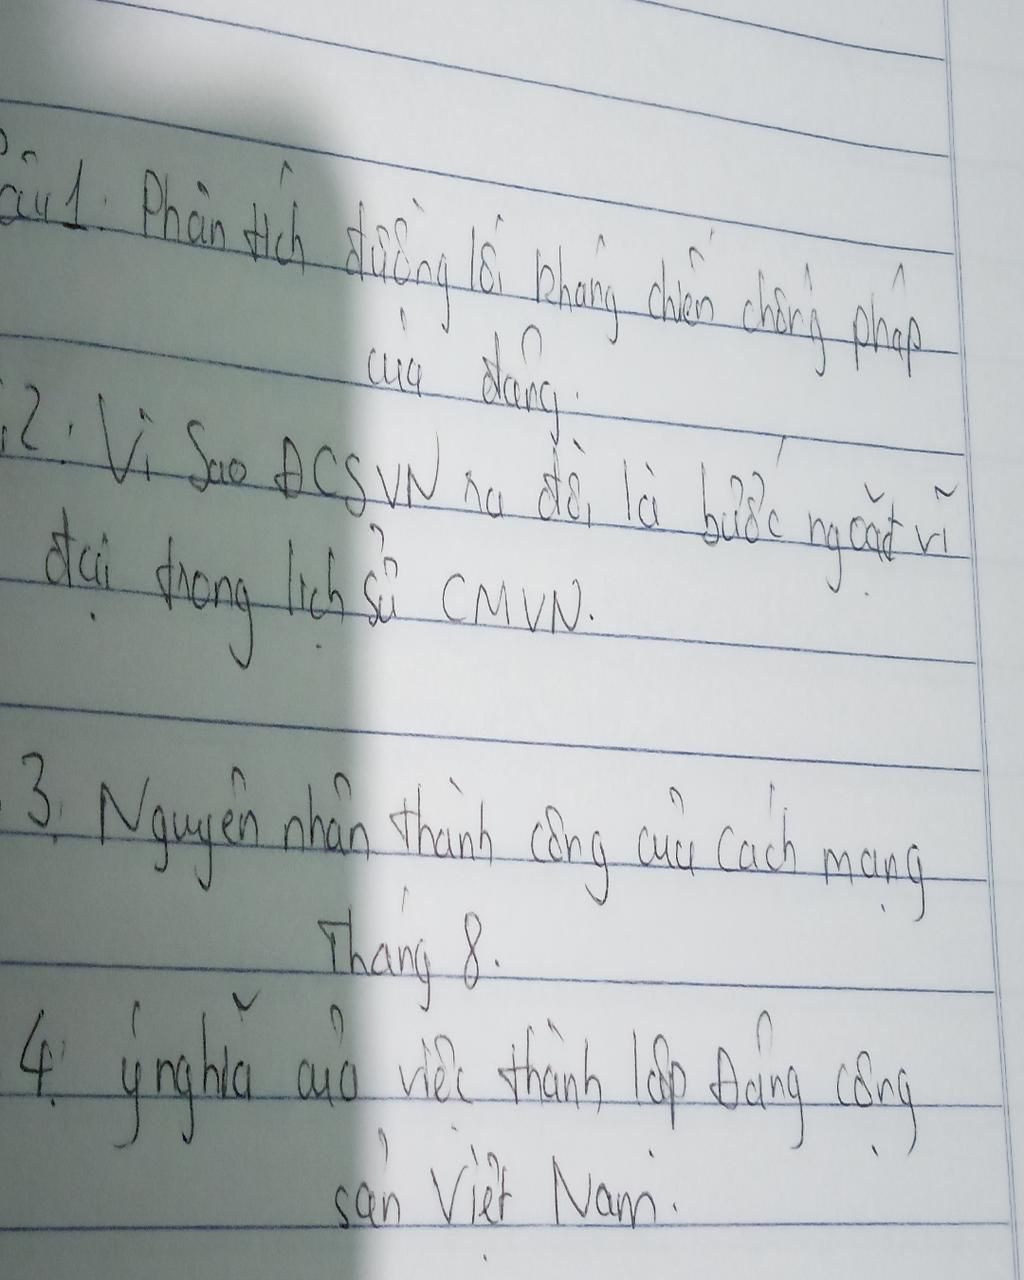 Câu 1. Phân tích đường lối kháng chiến chống pháp
của đảng.
2. Vì Sao ĐCSVN ra đời là bước ngoặt vĩ
đại trong lịch sử CMVN.
3. Nguyên nhân thành công của Cách mạng
Tháng 8.
4. ý nghĩa của việc thành lập Đảng cộng
sản Việt Nam.